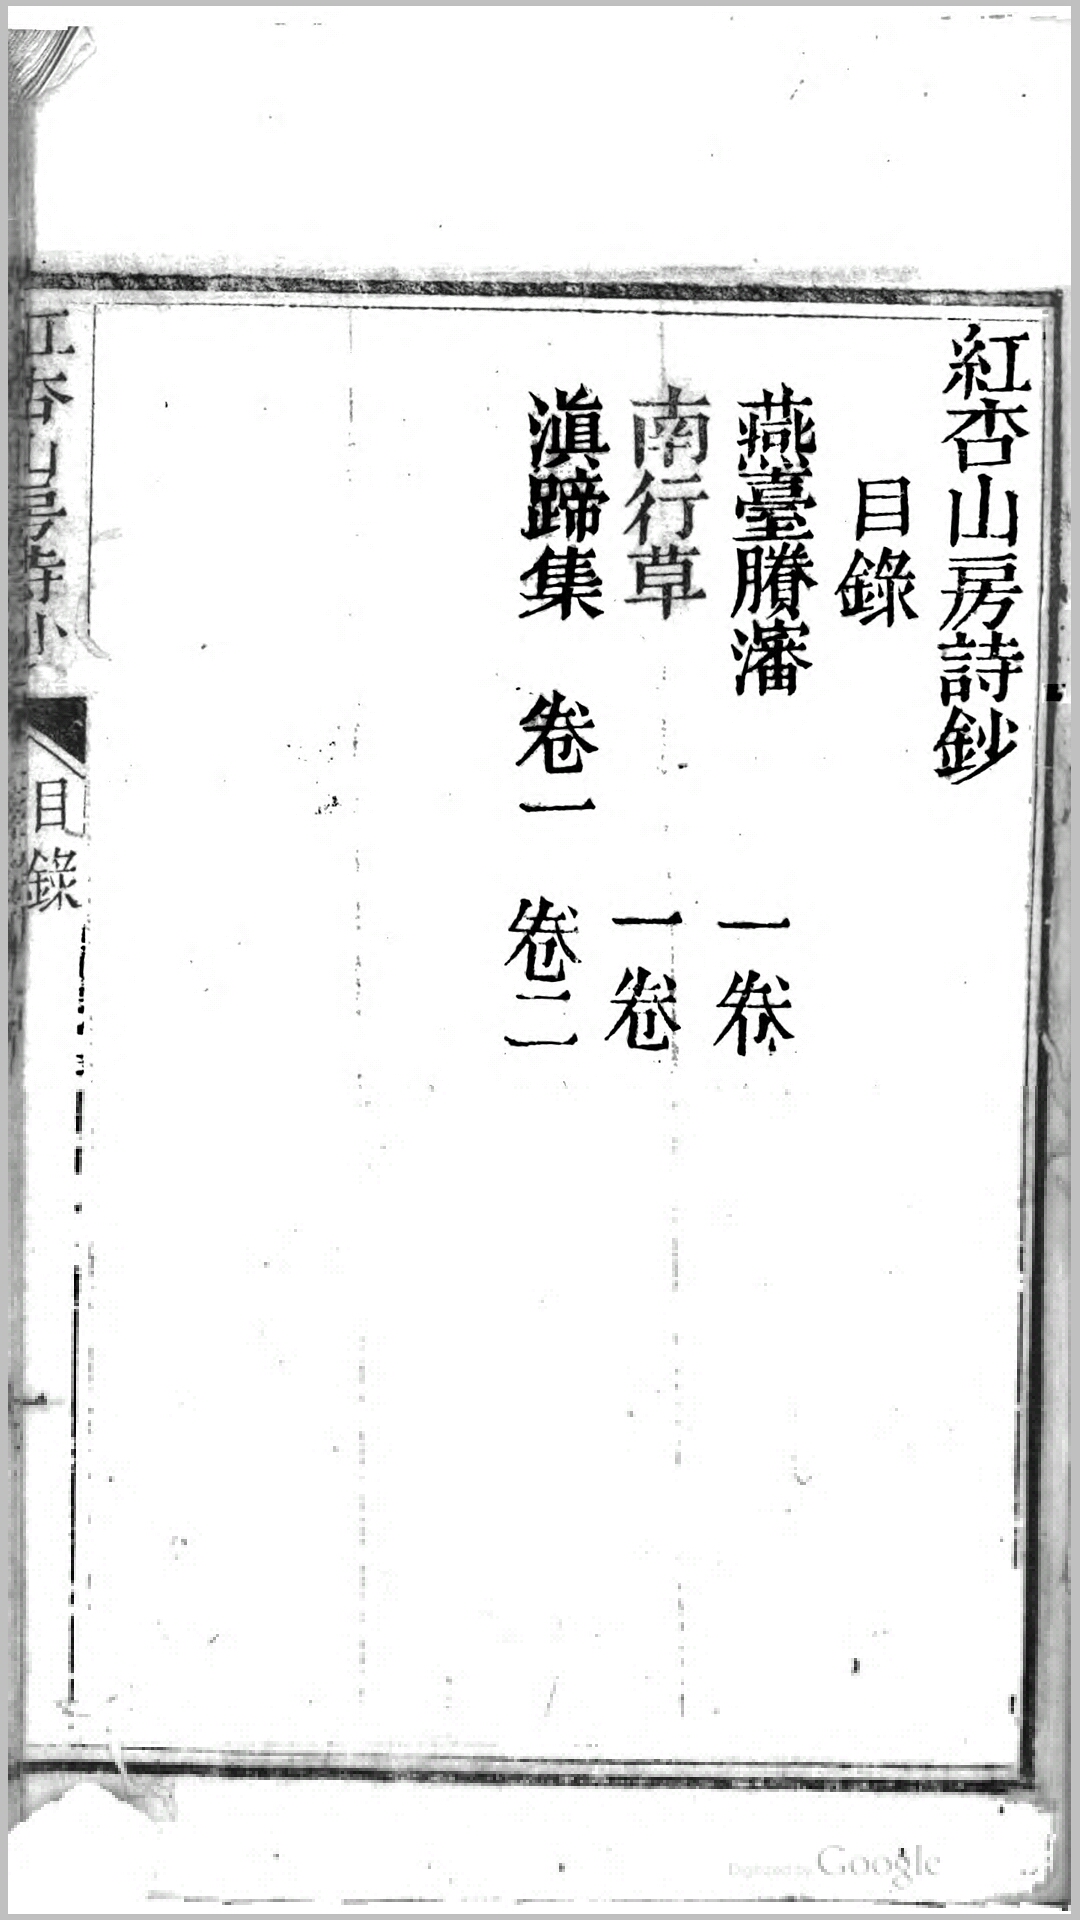 紅杏山房詩鈔
目錄
燕臺賸瀋 一卷
南行草 一卷
滇蹄集 卷一 卷二
紅杏山房詩鈔 目錄
Digitized by Google